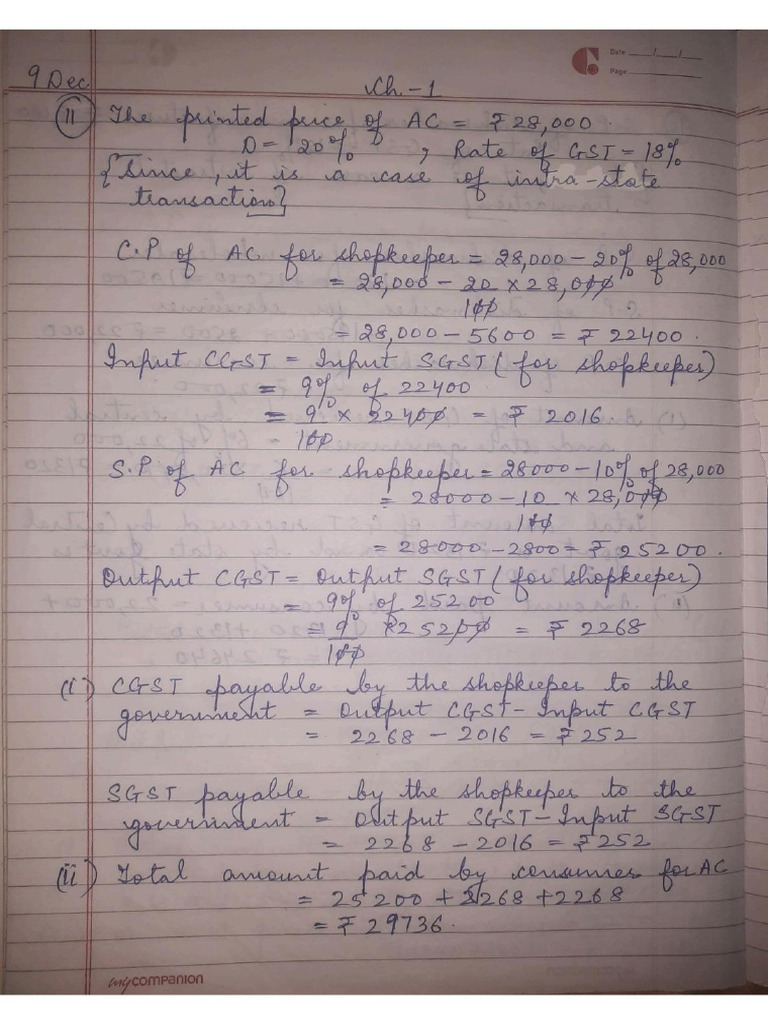 Date __/__/__
Page ______
9 Dec
Ch-1
(11) The printed price of AC = ₹28,000.
D = 20% , Rate of GST = 18%
{Since, it is a case of intra-state
transaction}
C.P of AC for shopkeeper = 28,000 - 20% of 28,000
= 28,000 - 20/100 × 28,000
= 28,000 - 5600 = ₹ 22400.
Input CGST = Input SGST (for shopkeeper)
= 9% of 22400
= 9/100 × 22400 = ₹ 2016.
S.P of AC for shopkeeper = 28000 - 10% of 28,000
= 28000 - 10/100 × 28,000
= 28000 - 2800 = ₹ 25200.
Output CGST = Output SGST (for shopkeeper)
= 9% of 25200
= 9/100 × 25200 = ₹ 2268
(i) CGST payable by the shopkeeper to the
government = Output CGST - Input CGST
= 2268 - 2016 = ₹252
SGST payable by the shopkeeper to the
government = Output SGST - Input SGST
= 2268 - 2016 = ₹252
(ii) Total amount paid by consumer for AC
= 25200 + 2268 + 2268
= ₹ 29736.
my companion